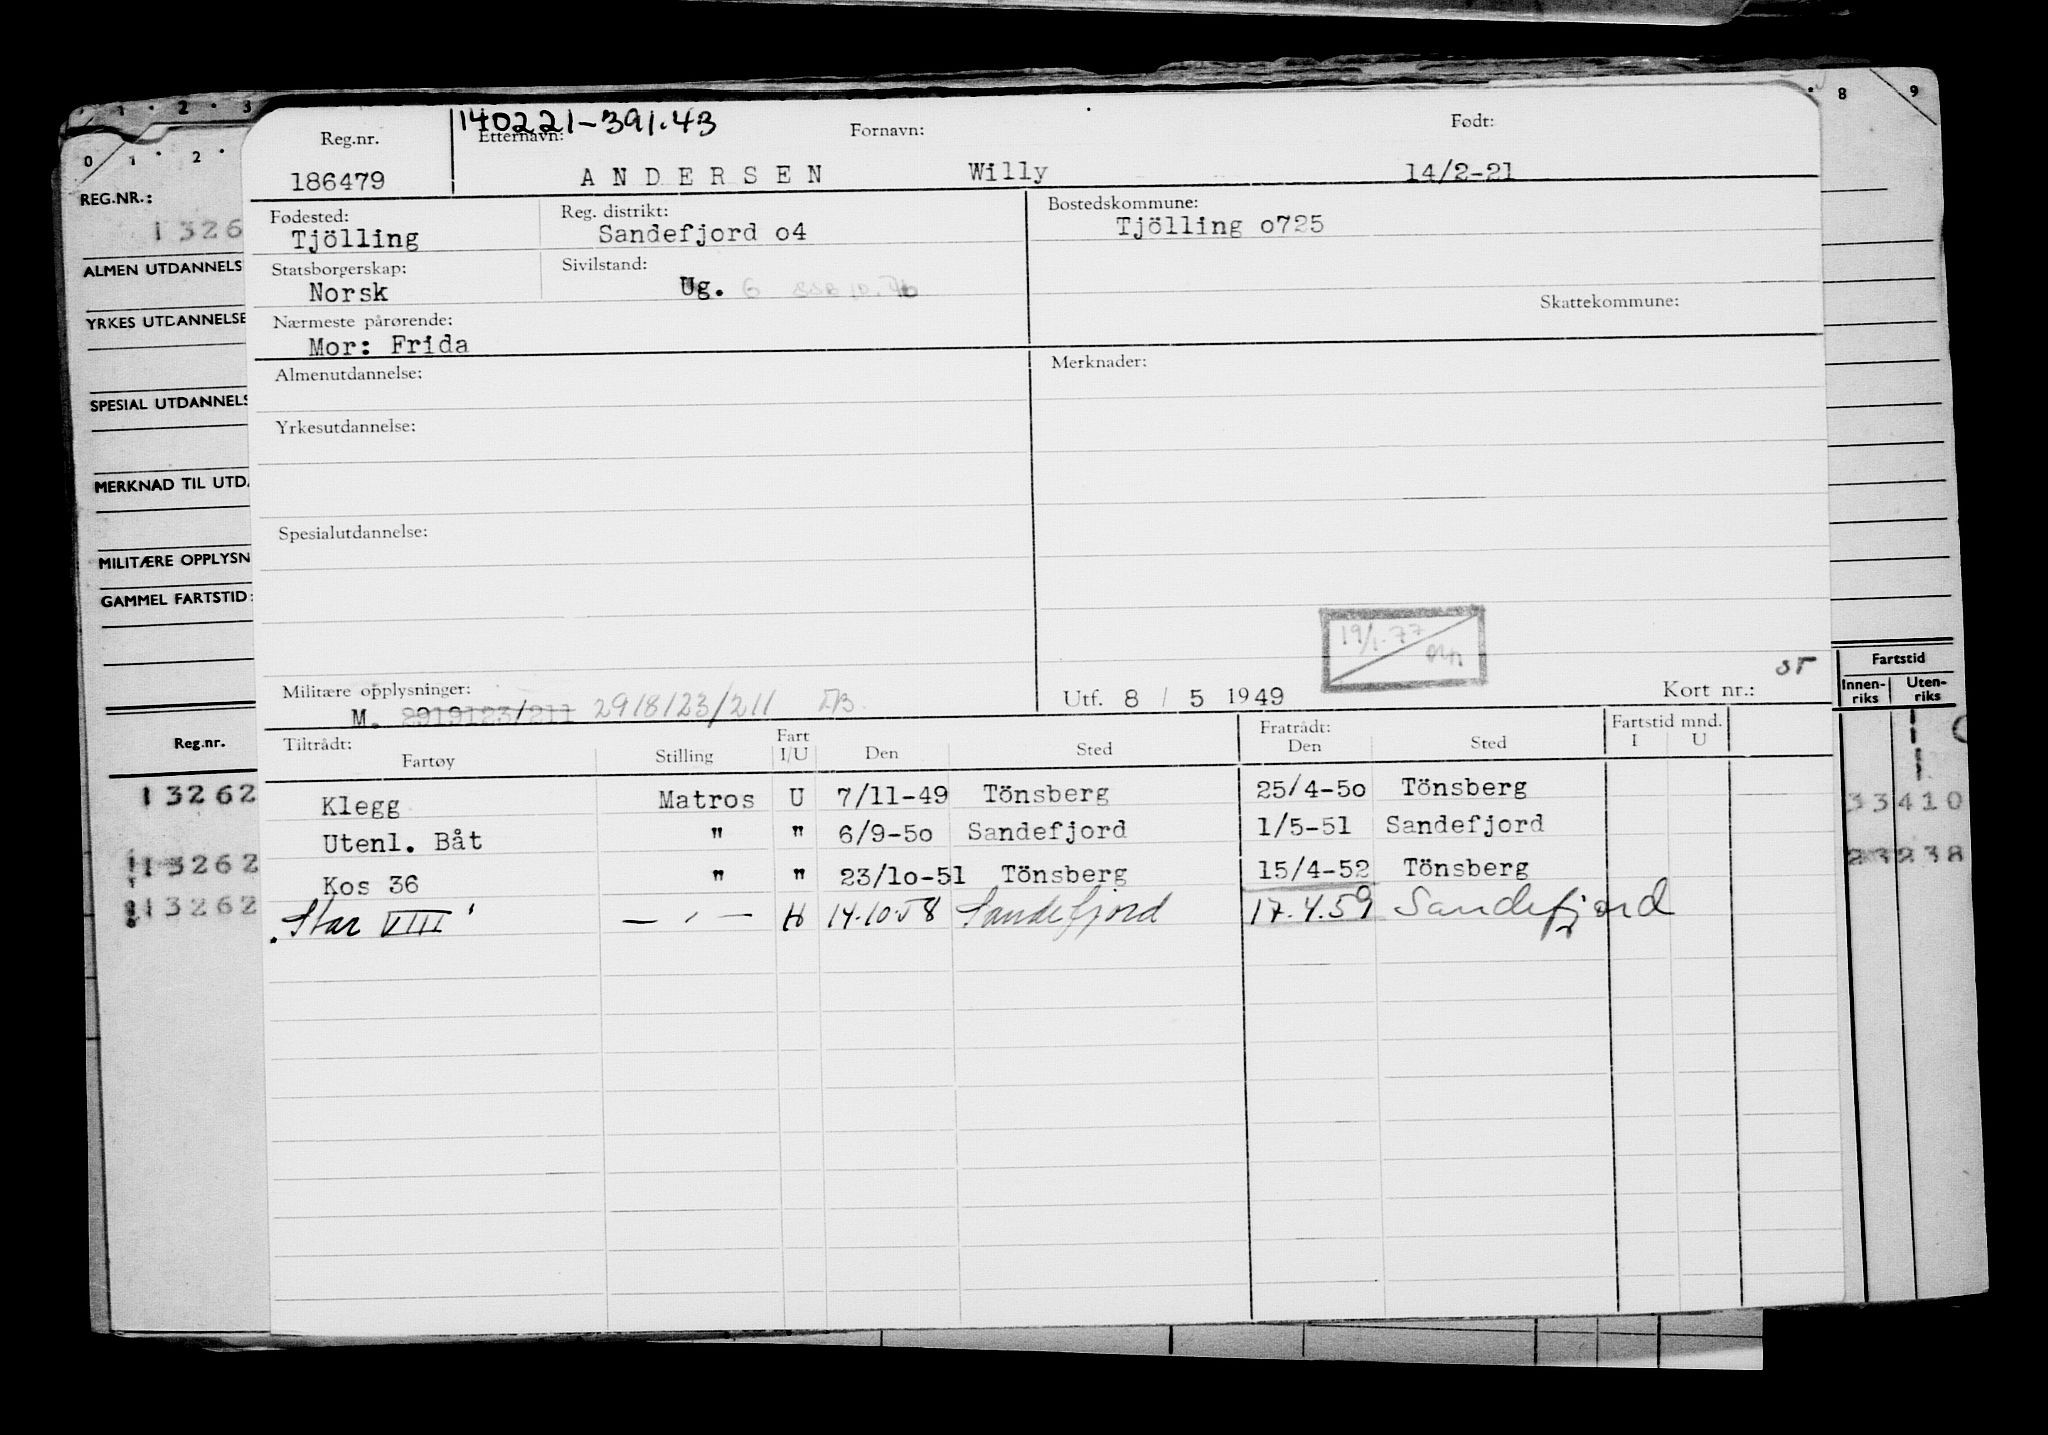 1 2 3 8 9
0 1 2
140221-391.43
Reg.nr. Etternavn: Fornavn: Født:
186479 ANDERSEN Willy 14/2-21
Fødested: Reg. distrikt: Bostedskommune:
Tjölling Sandefjord o4 Tjölling o725
Statsborgerskap: Sivilstand:
Norsk Ug. 6
Skattekommune:
Nærmeste pårørende:
Mor: Frida
Almenutdannelse: Merknader:
Yrkesutdannelse:
Spesialutdannelse:
19/1-77
Militære opplysninger: Utf. 8 / 5 1949 Kort nr.:
M. 2919123/211 2918/23/211
Tiltrådt: Fratrådt: Fartstid mnd.
Fartøy Stilling Fart I/U Den Sted Den Sted I U
Klegg Matros U 7/11-49 Tönsberg 25/4-5o Tönsberg
Utenl. Båt " " 6/9-5o Sandefjord 1/5-51 Sandefjord
Kos 36 " " 23/1o-51 Tönsberg 15/4-52 Tönsberg
"Star VIII" — " — H 14.10.58 Sandefjord 17.4.59 Sandefjord
REG.NR.:
1326
ALMEN UTDANNELS
YRKES UTDANNELSE
SPESIAL UTDANNELS
MERKNAD TIL UTD
MILITÆRE OPPLYSN
GAMMEL FARTSTID:
Reg.nr.
13262
13262
13262
Fartstid
Innen- Uten-
riks riks
33410
23238